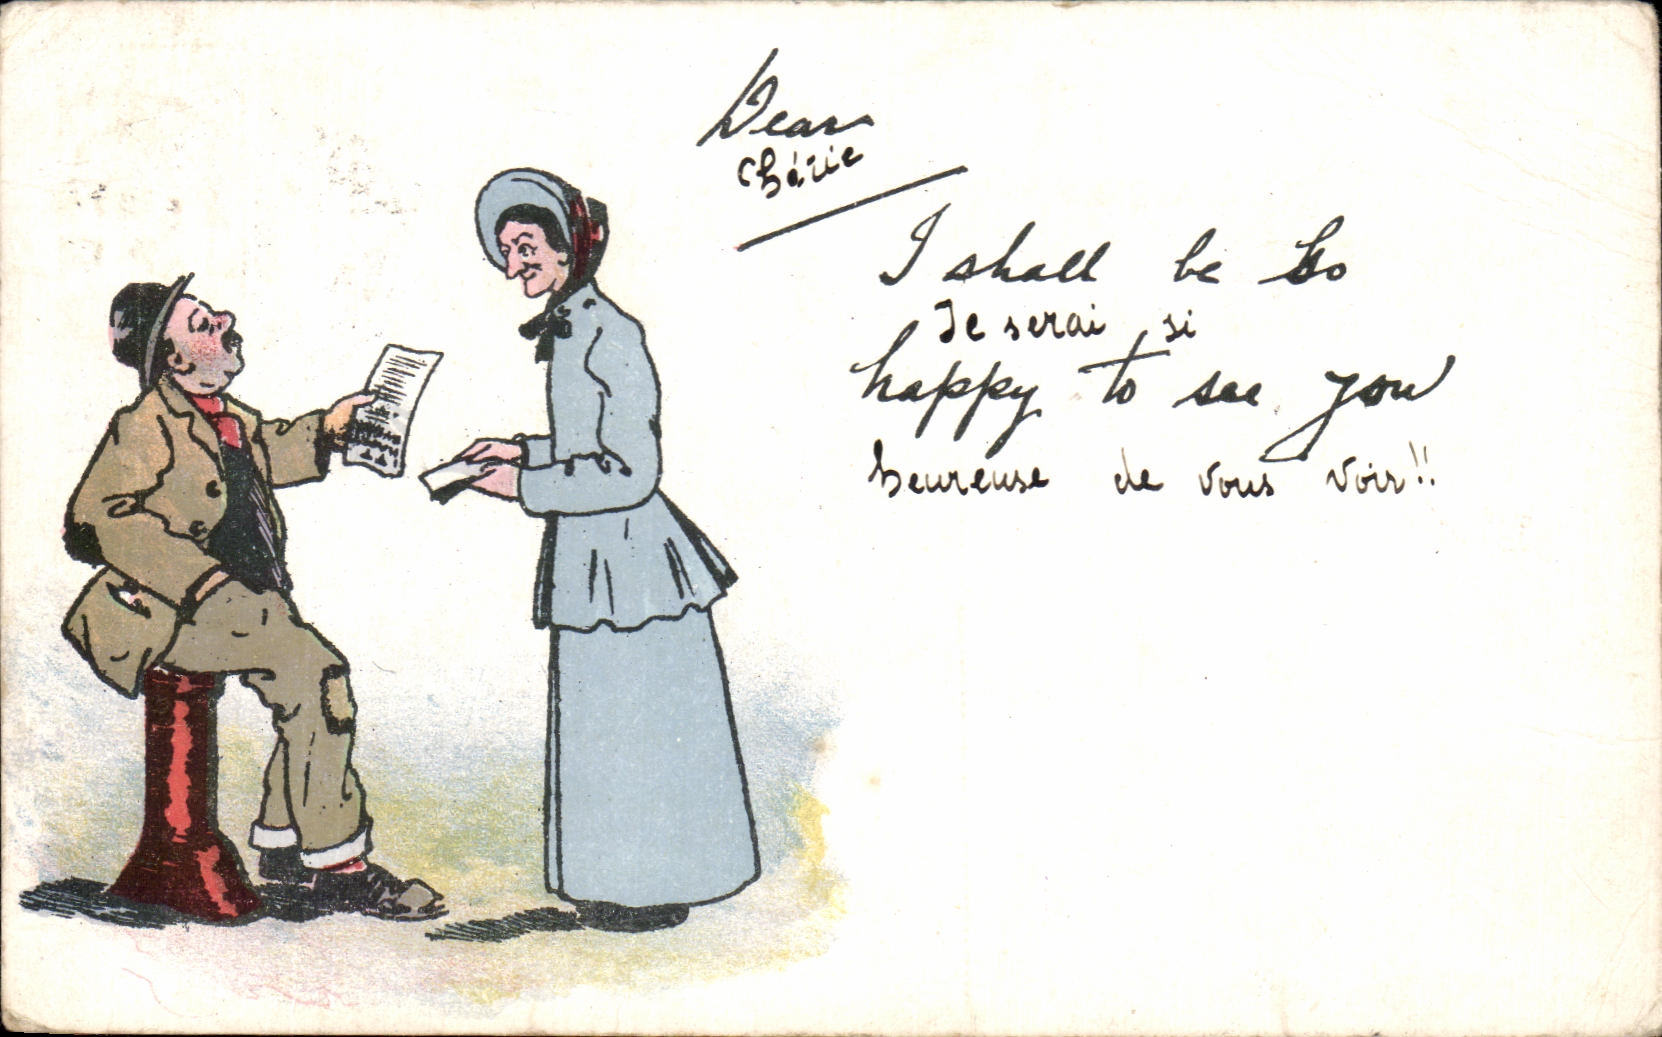 Dear
Chérie
I shall be so
Je serai si
happy to see you
heureuse de vous voir!!